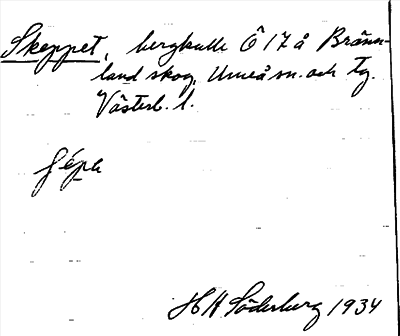 Skeppet, bergkulle Ö 17 å Bränn-
land skog, Umeå sn. och tg.
Västerb. l.
H H Söderberg 1934